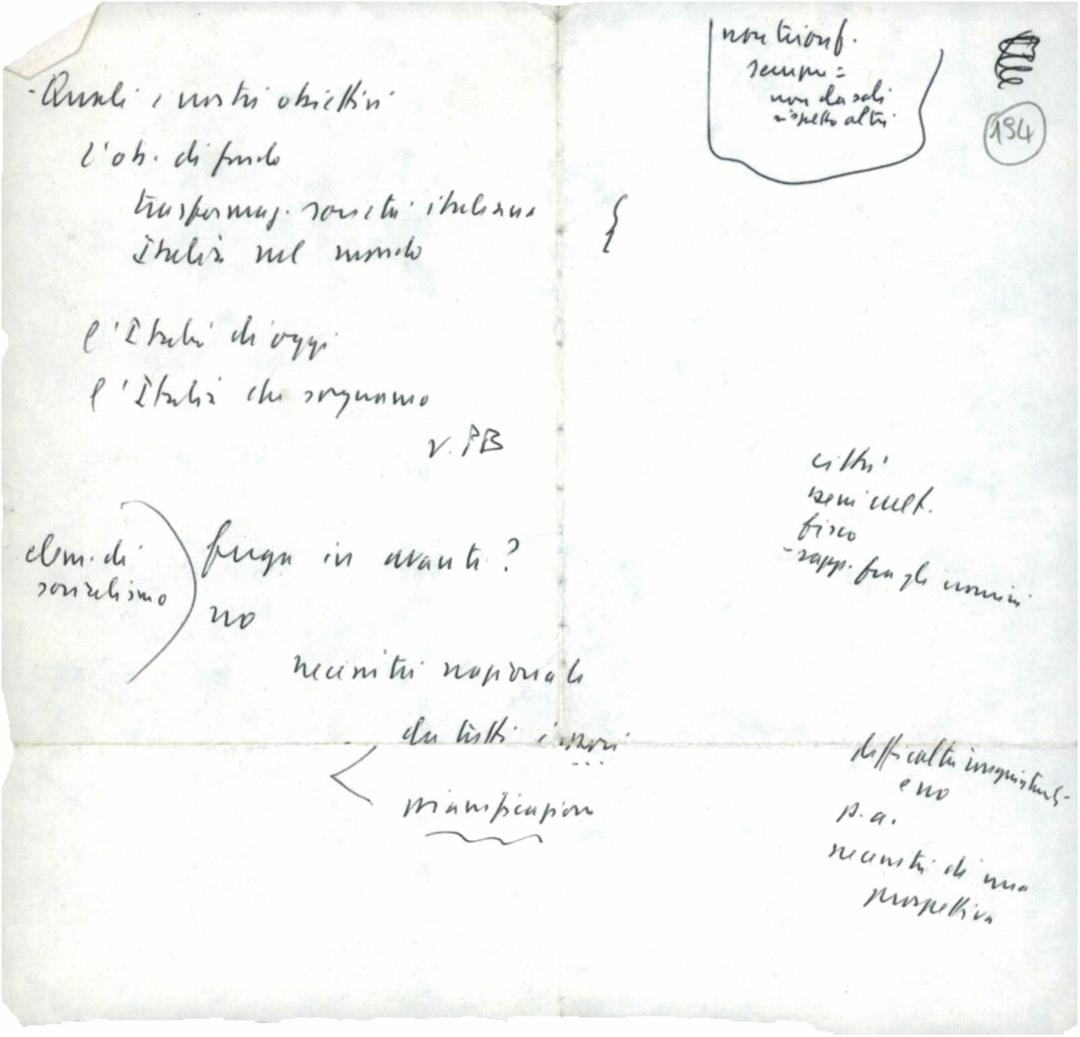 non trionf.
sempre =
non da soli
rispetto altri
194
- Quali i nostri obiettivi
l'ob. di fondo
trasformaz. società italiana
Italia nel mondo
l'Italia di oggi
l'Italia che sogniamo
v. PB
città
beni cult.
fisco
- rapp. fra gli uomini
elem. di
socialismo
fuga in avanti?
no
necessità nazionale
da tutti i
pianificazione
difficoltà
e no
p.a.
necessità di una
prospettiva